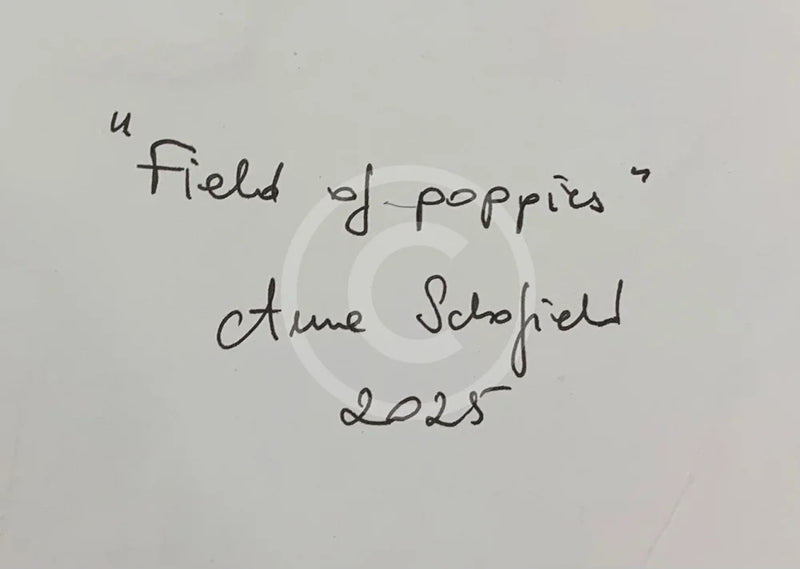 "Field of poppies"
Anne Schofield
2025